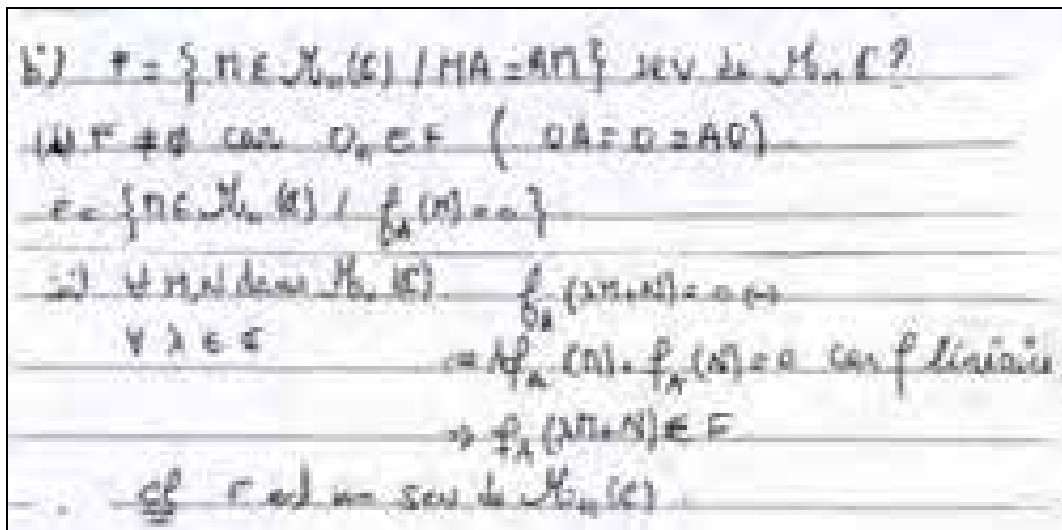 b) F = { M ∈ M_n(C) / MA = AM } sev de M_n C ?
(i) F ≠ ∅ car O_n ∈ F ( OA = O = AO )
F = { M ∈ M_n (C) / f_A (M) = 0 }
ii) ∀ M, N dans M_n (C) f_A (λM + N) = 0
∀ λ ∈ C
λ f_A (M) + f_A (N) = 0 car f linéaire
⇒ f_A (λM + N) ∈ F
F est un sev de M_n (C)